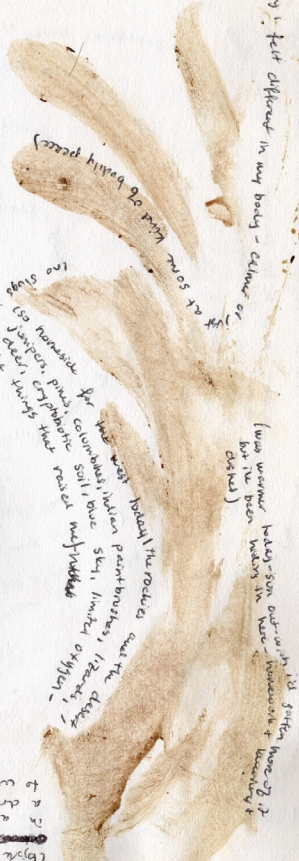 i felt different in my body - calmer or
at some kind of bodily peace)
(was warmer today - sun out - wish i'd gotten more of it
but i've been hiding in here - homework + laundry +
dishes)
(no slugs
so homesick for the west today (the rockies and the
junipers, pines, columbines, indian paintbrushes, lizards, desert
deer, cryptobiotic soil, blue sky, limited oxygen -
things that raised me